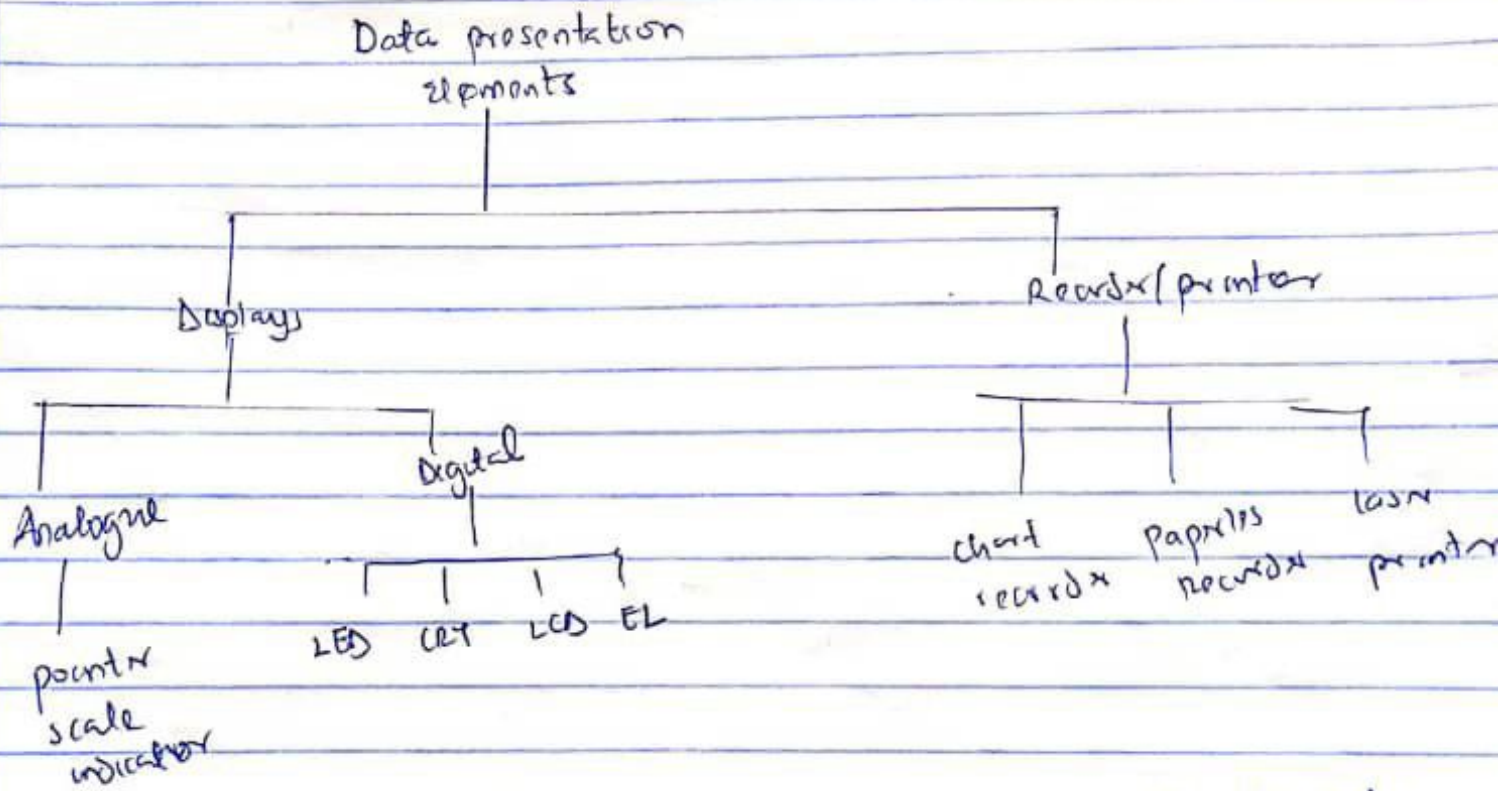 Data presentation
elements
Displays
Recorder/printer
Analogue
Digital
pointer
scale
indicator
LED CRT LCD EL
chart
recorder
paperless
recorder
laser
printer